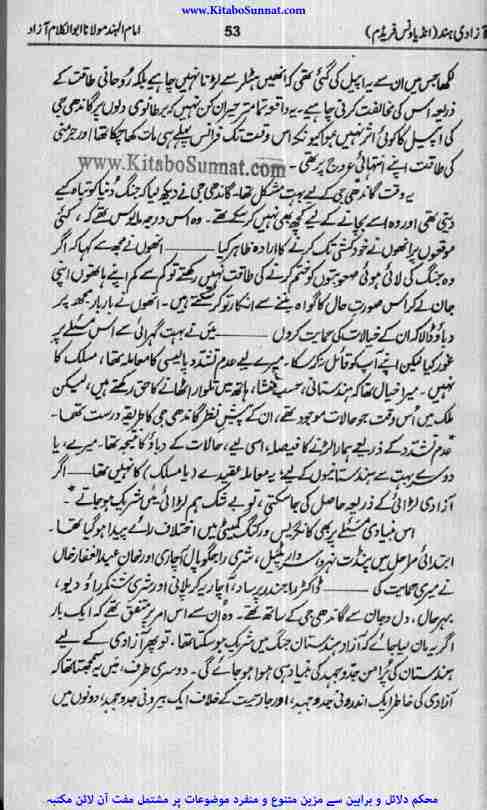 www.KitaboSunnat.com
آزادی ہند (انڈیا ونس فریڈم) 53 امام الہند مولانا ابوالکلام آزاد
لکھا جس میں ان سے یہ اپیل کی گئی تھی کہ انھیں ہٹلر سے لڑنا نہیں چاہیے بلکہ روحانی طاقت کے
ذریعہ اس کی مخالفت کرنی چاہیے۔ یہ واقعہ تمام تر حیران کن نہیں کہ برطانوی دلوں پر گاندھی جی
کی اپیل کا کوئی اثر نہیں ہوا کیونکہ اس وقت تک فرانس پہلے ہی مات کھا چکا تھا اور جرمنی
کی طاقت اپنے انتہائی عروج پر تھی۔
www.KitaboSunnat.com
یہ وقت گاندھی جی کے لیے بہت مشکل تھا۔ گاندھی جی نے دیکھ لیا کہ جنگ دنیا کو تباہ کیے
دیتی تھی اور وہ اسے بچانے کے لیے کچھ بھی نہیں کر سکتے تھے۔ وہ اس درجہ مایوس تھے کہ، کئی
موقعوں پر انھوں نے خودکشی تک کرنے کا ارادہ ظاہر کیا ——— انھوں نے مجھ سے کہا کہ اگر
وہ جنگ کی لائی ہوئی صعوبتوں کو ختم کرنے کی طاقت نہیں رکھتے تو کم سے کم اپنے ہاتھوں اپنی
جان لے کر اس صورت حال کا گواہ بننے سے انکار تو کر سکتے ہیں۔ انھوں نے بار بار مجھ پر
دباؤ ڈالا کہ ان کے خیالات کی حمایت کروں ——— میں نے بہت گہرائی سے اس مسئلے پر
غور کیا لیکن اپنے آپ کو قائل نہ کر سکا۔ میرے لیے عدم تشدد پالیسی کا معاملہ تھا، مسلک کا
نہیں۔ میرا خیال تھا کہ ہندستانی، حسب منشا، ہاتھ میں تلوار اٹھانے کا حق رکھتے ہیں، لیکن
ملک میں اس وقت جو حالات موجود تھے، ان کے پیش نظر گاندھی جی کا طریقہ درست تھا۔
عدم تشدد کے ذریعے ہمارا لڑنے کا فیصلہ، اسی لیے، حالات کے دباؤ کا نتیجہ تھا۔ میرے، یا
دوسرے بہت سے ہندستانیوں کے لیے، یہ معاملہ عقیدے (یا مسلک) کا نہیں تھا — اگر
آزادی لڑائی کے ذریعہ حاصل کی جا سکتی، تو بے شک ہم لڑائی میں شریک ہو جاتے۔
اس بنیادی مسئلے پر بھی کانگریس ورکنگ کمیٹی میں اختلاف رائے پیدا ہو گیا تھا۔
ابتدائی مراحل میں پنڈت نہرو، سردار پٹیل، شری راجگوپال آچاری اور خان عبدالغفار خاں
نے میری حمایت کی ——— ڈاکٹر راجندر پرساد، آچاریہ کرپلانی اور شری شنکر راؤ دیو،
بہرحال، دل و جان سے گاندھی جی کے ساتھ تھے۔ وہ ان سے اس امر پر متفق تھے کہ ایک بار
اگر یہ مان لیا جائے کہ آزاد ہندستان جنگ میں شریک ہو سکتا تھا، تو پھر آزادی کے لیے
ہندستان کی پُرامن جدوجہد کی بنیاد ہی ہوا ہو جائے گی۔ دوسری طرف، میں یہ سمجھتا تھا کہ
آزادی کی خاطر ایک اندرونی جدوجہد، اور جارحیت کے خلاف ایک بیرونی جدوجہد، دونوں میں
محکم دلائل و براہین سے مزین متنوع و منفرد موضوعات پر مشتمل مفت آن لائن مکتبہ
www.KitaboSunnat.com